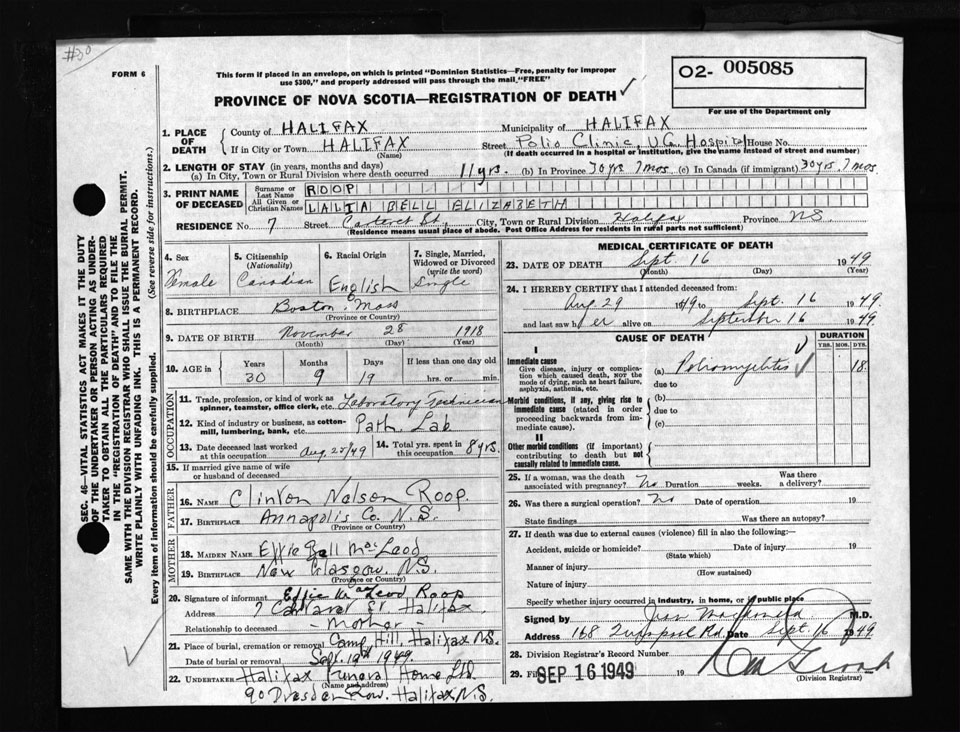 #20
FORM 6
This form if placed in an envelope, on which is printed "Dominion Statistics—Free, penalty for improper
use $300," and properly addressed will pass through the mail, "FREE"
PROVINCE OF NOVA SCOTIA—REGISTRATION OF DEATH
O2- 005085
For use of the Department only
1. PLACE OF DEATH
County of HALIFAX Municipality of HALIFAX
If in City or Town HALIFAX Street Polio Clinic, V.G. Hospital House No.
(Name) (If death occurred in a hospital or institution, give the name instead of street and number)
2. LENGTH OF STAY (in years, months and days)
(a) In City, Town or Rural Division where death occurred 11 yrs. (b) In Province 30 yrs 7 mos (c) In Canada (if immigrant) 30 yrs. 7 mos.
3. PRINT NAME OF DECEASED
Surname or Last Name ROOP
All Given or Christian Names BELL ELIZABETH
RESIDENCE No. 7 Street Carteret St, City, Town or Rural Division Halifax Province NS
(Residence means usual place of abode. Post Office Address for residents in rural parts not sufficient)
4. Sex Female
5. Citizenship (Nationality) Canadian
6. Racial Origin English
7. Single, Married, Widowed or Divorced (write the word) Single
8. BIRTHPLACE Boston Mass
(Province or Country)
9. DATE OF BIRTH November 28 1918
(Month) (Day) (Year)
10. AGE in Years 30 Months 9 Days 19 If less than one day old hrs. or min.
OCCUPATION
11. Trade, profession, or kind of work as spinner, teamster, office clerk, etc. Laboratory Technician
12. Kind of industry or business, as cotton-mill, lumbering, bank, etc. Path Lab
13. Date deceased last worked at this occupation Aug 28/49
14. Total yrs. spent in this occupation 8 yrs.
15. If married give name of wife or husband of deceased
FATHER
16. NAME Clinton Nelson Roop
17. BIRTHPLACE Annapolis Co. N.S.
(Province or Country)
MOTHER
18. MAIDEN NAME Effie Bell MacLeod
19. BIRTHPLACE New Glasgow. N.S.
(Province or Country)
20. Signature of informant Effie MacLeod Roop
Address 7 Carteret St Halifax
Relationship to deceased - Mother -
21. Place of burial, cremation or removal Camp Hill, Halifax N.S.
Date of burial or removal Sept. 19th 1949.
22. UNDERTAKER Halifax Funeral Home Ltd.
(Name and address)
90 Dresden Row. Halifax N.S.
MEDICAL CERTIFICATE OF DEATH
23. DATE OF DEATH Sept. 16 1949
(Month) (Day) (Year)
24. I HEREBY CERTIFY that I attended deceased from:
Aug 29 1949 to Sept. 16 1949.
and last saw her alive on September 16 1949.
CAUSE OF DEATH
DURATION
YRS. MOS. DYS.
I
Immediate cause
Give disease, injury or complication which caused death, NOT the mode of dying, such as heart failure, asphyxia, asthenia, etc.
(a) Poliomyelitis 18
due to
Morbid conditions, if any, giving rise to immediate cause (stated in order proceeding backwards from immediate cause).
(b)
due to
(c)
II
Other morbid conditions (if important) contributing to death but not causally related to immediate cause.
25. If a woman, was the death associated with pregnancy? No Duration weeks. Was there a delivery?
26. Was there a surgical operation? No Date of operation 19
State findings Was there an autopsy?
27. If death was due to external causes (violence) fill in also the following:—
Accident, suicide or homicide? Date of injury 19
(State which)
Manner of injury
(How sustained)
Nature of injury
Specify whether injury occurred in industry, in home, or public place
Signed by Jean Macdonald M.D.
Address 168 Rd. Date Sept. 16 1949.
28. Division Registrar's Record Number
29. Filed SEP 16 1949 19
(Division Registrar)
SEC. 46—VITAL STATISTICS ACT MAKES IT THE DUTY
OF THE UNDERTAKER OR PERSON ACTING AS UNDER-
TAKER TO OBTAIN ALL THE PARTICULARS REQUIRED
IN THE "REGISTRATION OF DEATH" AND TO FILE THE
SAME WITH THE DIVISION REGISTRAR WHO SHALL ISSUE THE BURIAL PERMIT.
WRITE PLAINLY WITH UNFADING INK. THIS IS A PERMANENT RECORD.
Every item of information should be carefully supplied. (See reverse side for instructions.)